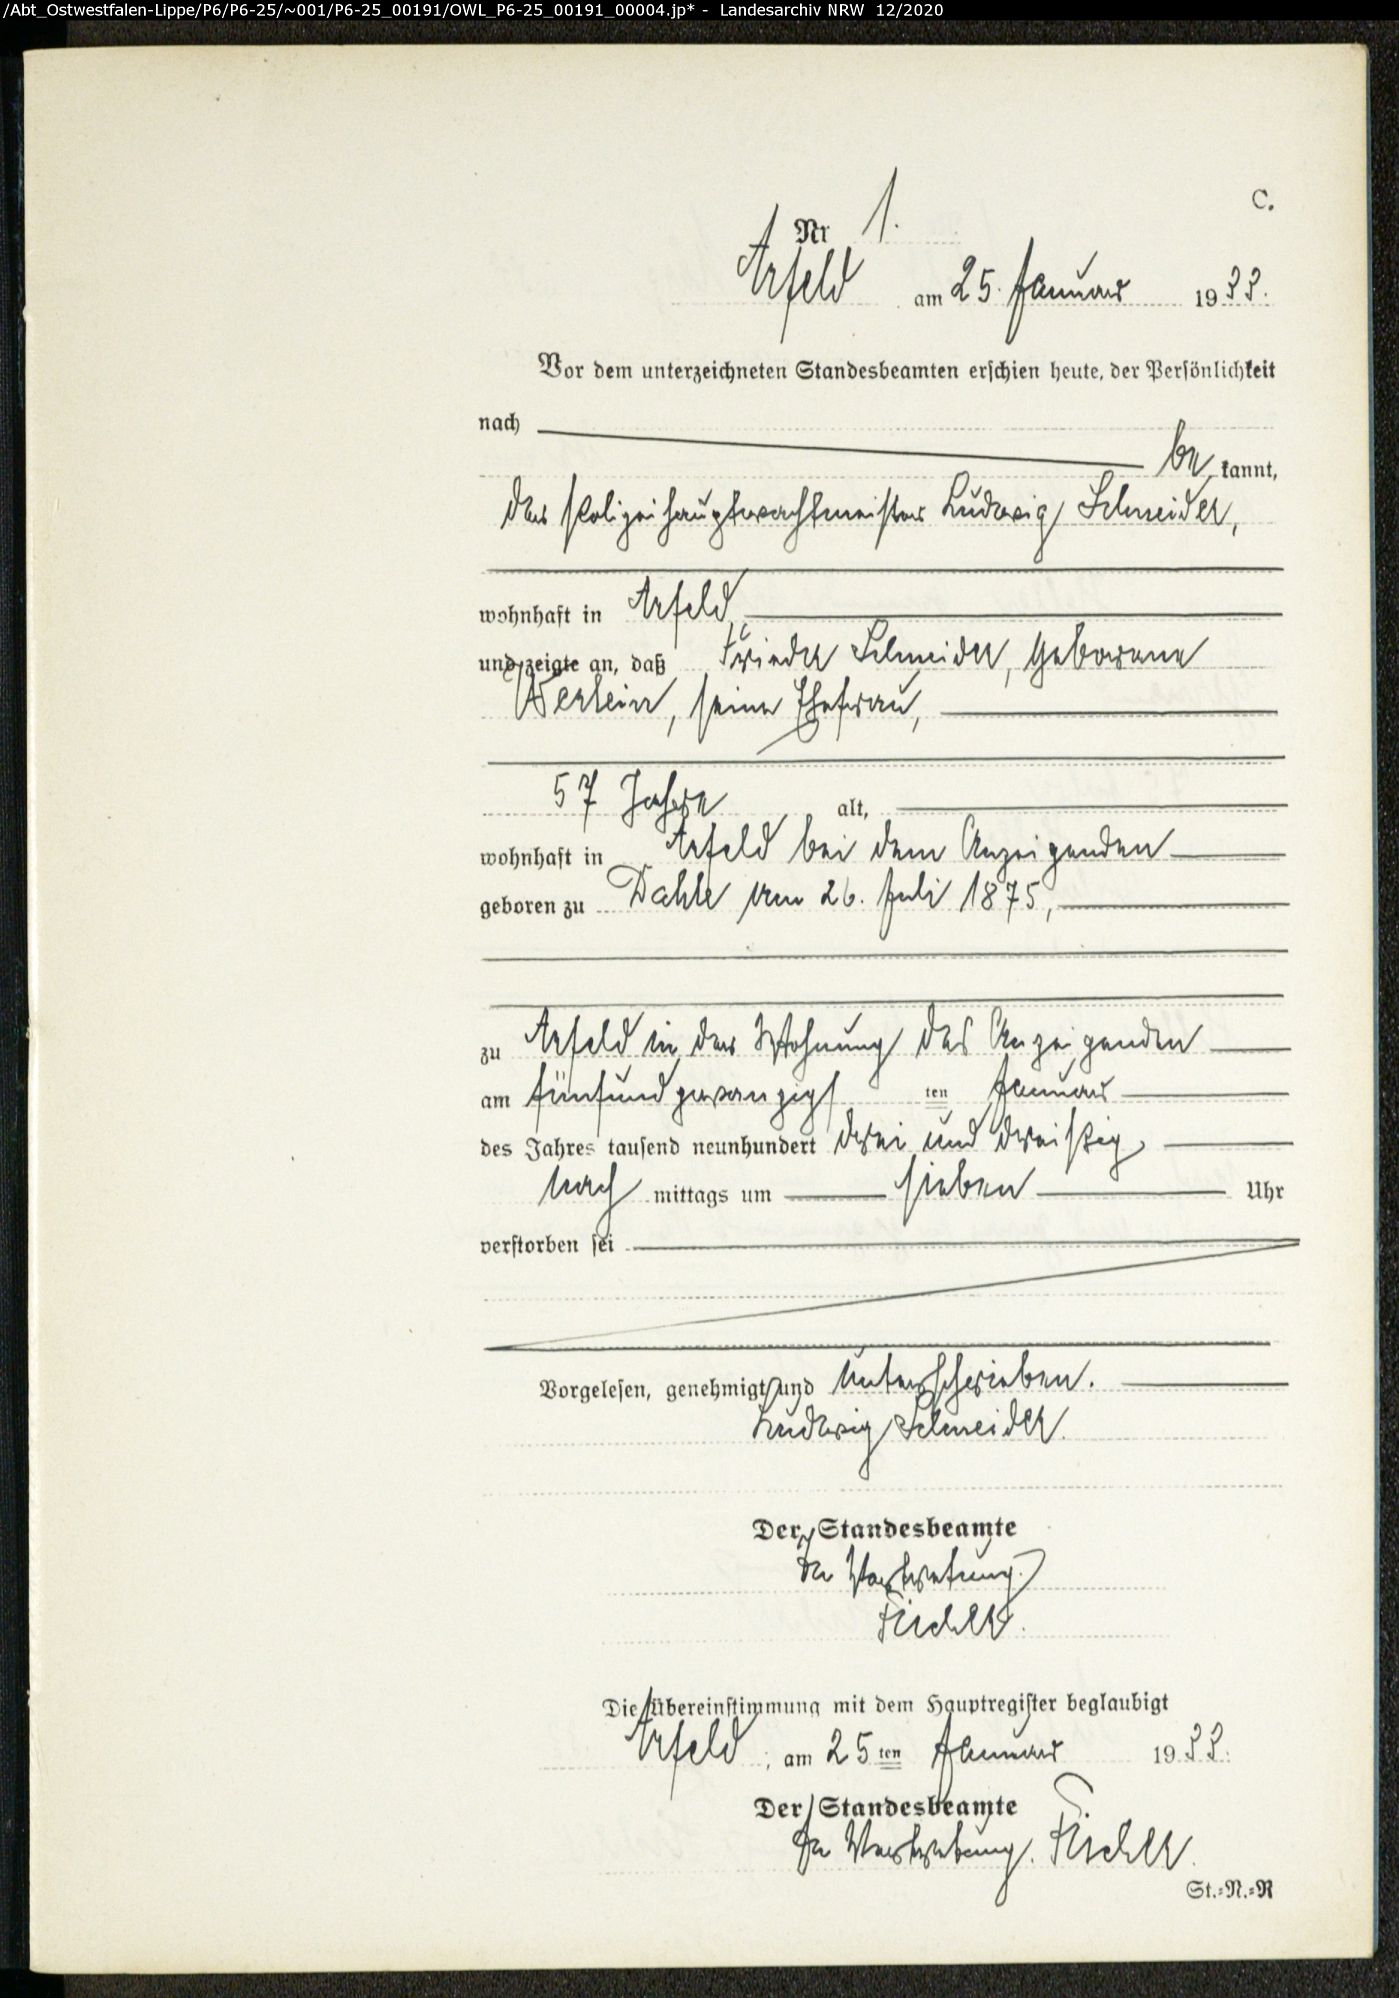 /Abt_Ostwestfalen-Lippe/P6/P6-25/~001/P6-25_00191/OWL_P6-25_00191_00004.jp* - Landesarchiv NRW 12/2020
C.
Nr 1.
Arfeld am 25. Januar 1933.
Vor dem unterzeichneten Standesbeamten erschien heute, der Persönlichkeit
nach
be kannt,
der Polizeihauptwachtmeister Ludwig Schneider,
wohnhaft in Arfeld,
und zeigte an, daß Frieder Schneider, geborene
Werlein, seine Ehefrau,
57 Jahre alt,
wohnhaft in Arfeld bei dem Anzeigenden
geboren zu Dahle am 26. Juli 1875,
zu Arfeld in der Wohnung des Anzeigenden
am fünfundzwanzigs ten Januar
des Jahres tausend neunhundert drei und dreißig,
nach mittags um sieben Uhr
verstorben sei
Vorgelesen, genehmigt und unterschrieben.
Ludwig Schneider.
Der Standesbeamte
In Vertretung.
Die Übereinstimmung mit dem Hauptregister beglaubigt
Arfeld, am 25 ten Januar 1933.
Der Standesbeamte
In Vertretung.
St.=N.=R